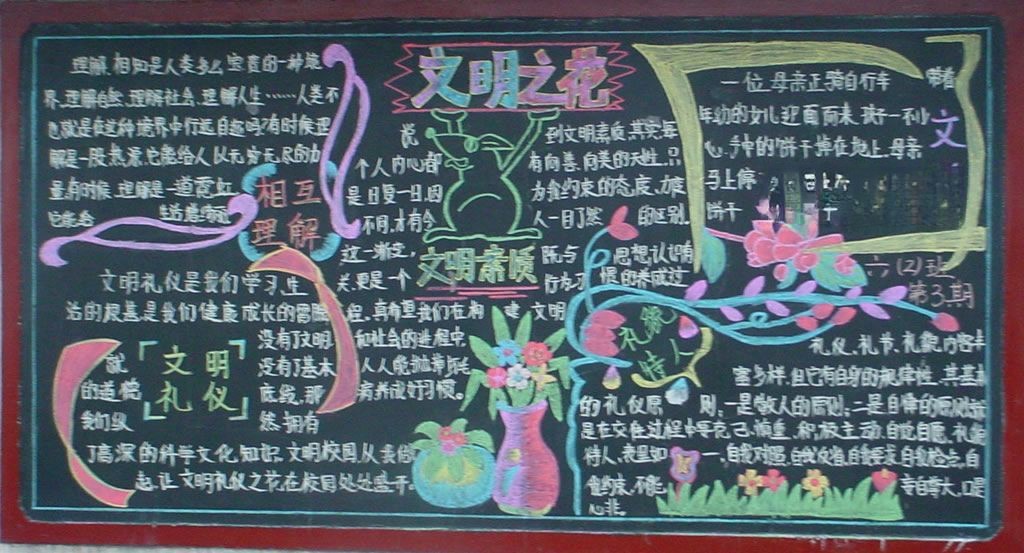 文明之花
理解、相知是人类多么宝贵的一种境
界、理解自然、理解社会、理解人生……人类不
也就是在这种境界中行进自如吗？有时候理
解是一股热源，它能给人以无穷无尽的力
量，有时候理解是一道霓虹
它能念
相互
理解
文明礼仪是我们学习、生
活的根基，是我们健康成长的
没有了文明
就
没有了基本
的道德
底线，那
我们纵
然拥有
了高深的科学文化知识
文明校园，从我做
起，让文明礼仪之花在校园处处盛开。
文明
礼仪
说
到文明素质，其实每
个人内心都
有向善、向美的天性，只
是日复一日，因
为自约束的态度、力度
不同，才有今
人一目了然
的区别。
这一渐变，
既与
思想认识有
关，更是一个
行为习
惯的养成过
程，真希望我们在构
建
文明
和社会的进程中
人人能抛弃陋
病养成好习惯。
文明素质
一位母亲正骑自行车
带着
年幼的女儿迎面而来，孩子一不小
心，手中的饼干掉在地上，母亲
马上停
饼干
文
六（2）班
第3期
礼貌
待人
礼仪、礼节、礼貌内容丰
富多样，但它有自身的规律性，其基本
的礼仪原
则：一是敬人的原则；二是自律的原则，就
是在交往过程中要克己、慎重、积极主动、自觉自愿、礼貌
待人、表里如
一，自我对照，自我反省，自我要求，自我检点，自
我约束，不能
妄自尊大，口是
心非。